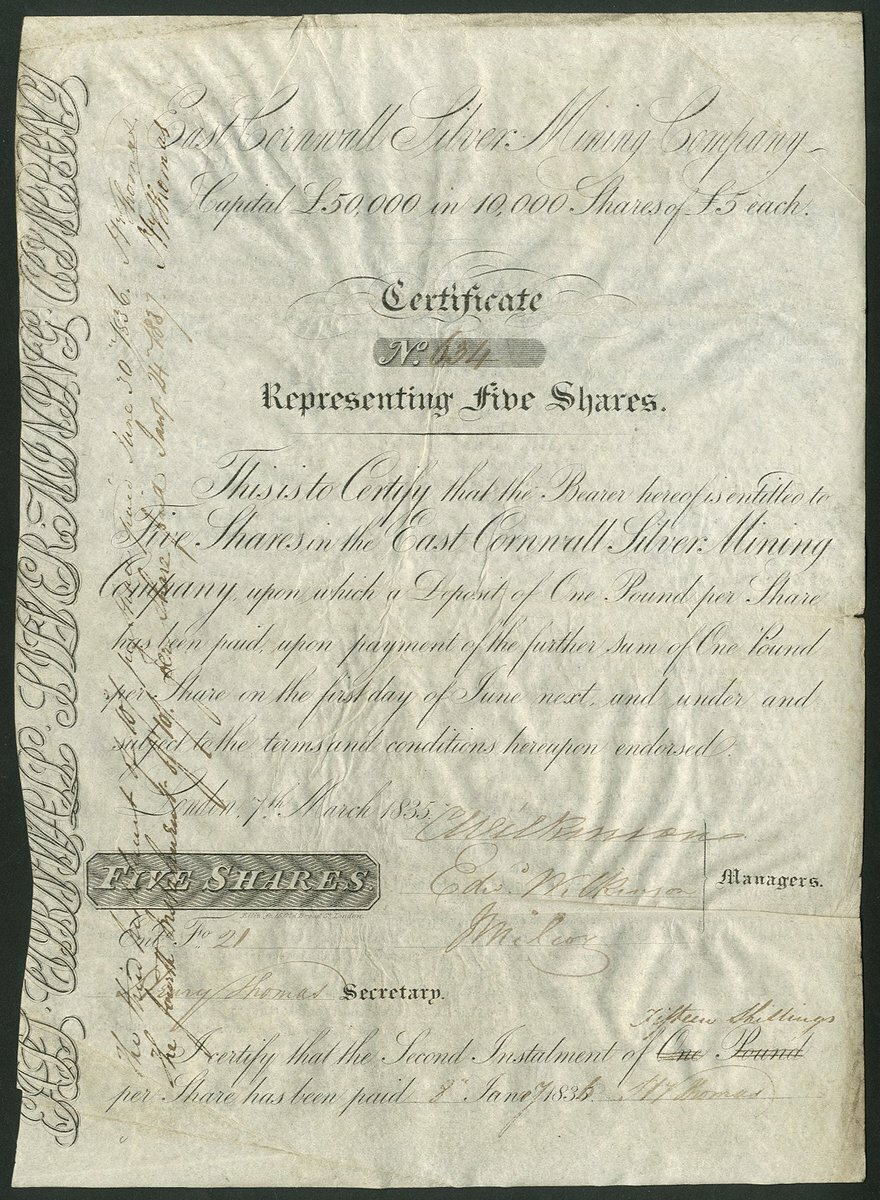 East Cornwall Silver Mining Company
Capital £50,000 in 10,000 Shares of £5 each.
Certificate
No. 634
Representing Five Shares.
This is to Certify that the Bearer hereof is entitled to
Five Shares in the East Cornwall Silver Mining
Company, upon which a Deposit of One Pound per Share
has been paid, upon payment of the further sum of One Pound
per Share on the first day of June next, and under and
subject to the terms and conditions hereupon endorsed.
London, 7th March 1835.
C Wilkinson
Edwd. Wilkinson
Managers.
FIVE SHARES
Entd. Fo 21
Henry Thomas Secretary.
Fifteen Shillings
I certify that the Second Instalment of One Pound
per Share has been paid 8th Jany 1836. Hy Thomas
The third instalment of 10/ per share paid June 30 1836. Hy Thomas
The fourth instalment of 10/. per share paid Jany 24 1837 Hy Thomas
EAST CORNWALL SILVER MINING COMPANY